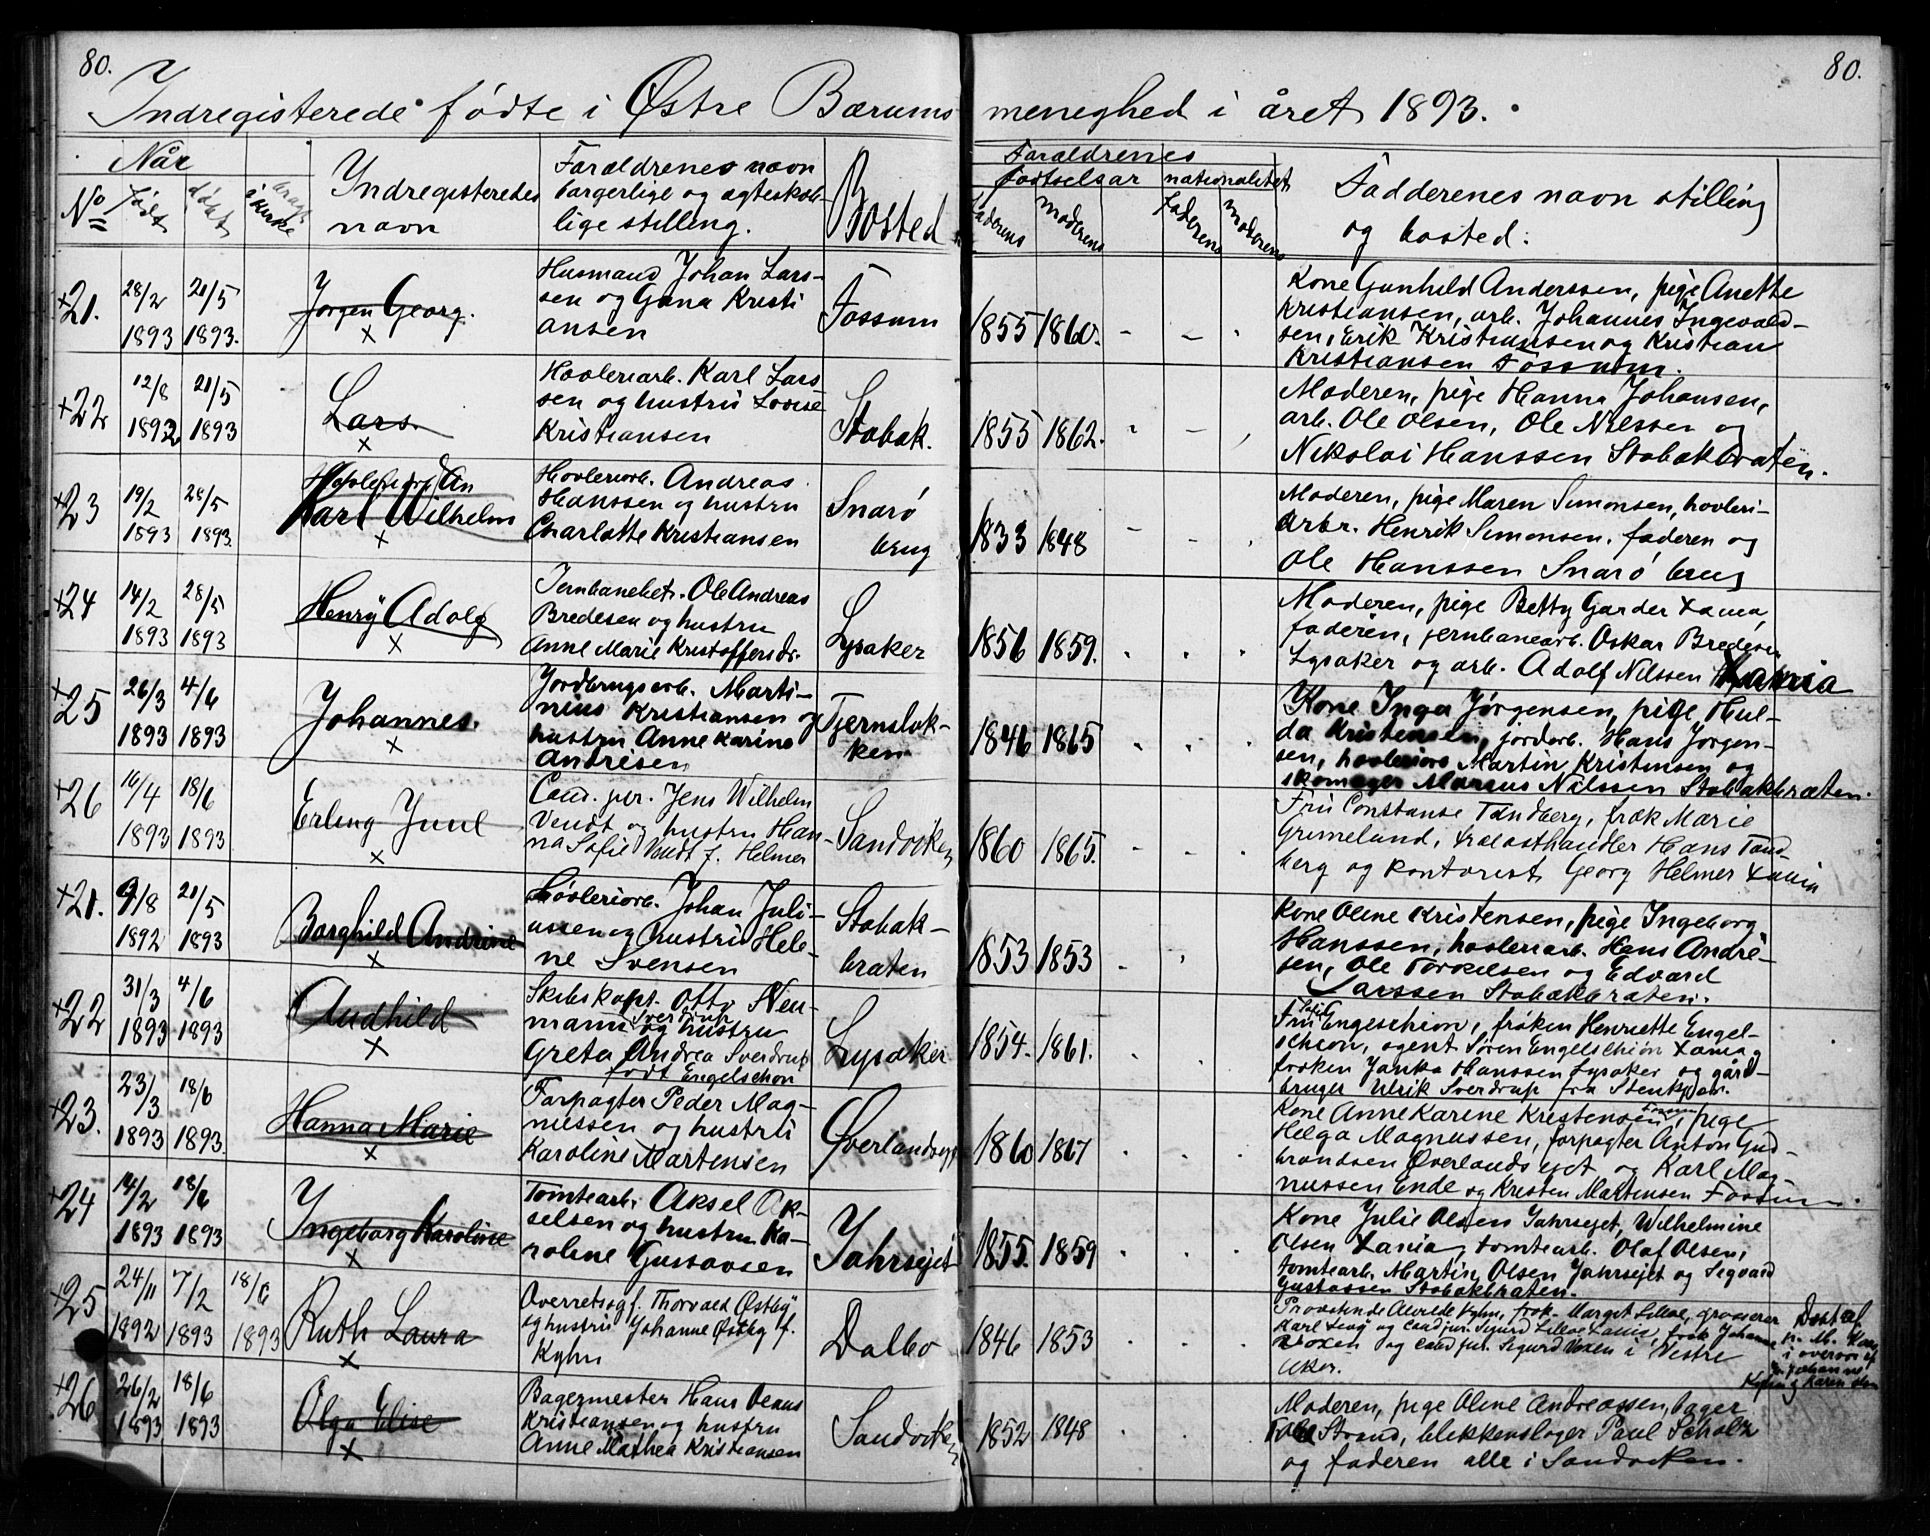 80.
80.
Indregisterede fødte i Østre Bærums menighed i året 1893.
Når
No født døbt i kirke
Indregisteredes navn
Foraldrenes navn
borgerlige og ægteskab-
lige stilling.
Bosted
Foraldrenes
fødtselsår nationalitet
faderens moderens faderens moderens
Fadderenes navn stilling
og bosted.
+21. 28/2 1893 21/5 1893.
Jørgen Georg.
Husmand Johan Lars-
sen og Gina Kristi
ansen
Fossum
1855 1860.
Kone Gunhild Anderssen, pige Anette
Kristiansen, arb. Johannes Ingevald-
sen, Erik Kristiansen og Kristian
Kristiansen Fossum.
+22 12/8 1892 21/5 1893
Lars.
Høvleriarb. Karl Lars
sen og hustru Lovise
Kristiansen
Stabæk.
1855 1862.
Moderen, pige Hanna Johansen,
arb. Ole Olsen, Ole Nilssen og
Nikolai Hanssen Stabækbråten.
+23 19/2 1893 28/5 1893.
Karl Wilhelm
Høvleriarb. Andreas
Hanssen og hustru
Charlotte Kristiansen
Snarø
brug
1833 1848
Moderen, pige Maren Simonsen, høvleri-
arbr. Henrik Simonsen, faderen og
Ole Hanssen Snarø brug
+24 14/2 1893 28/5 1893
Henry Adolf
Jernbanebet. Ole Andreas
Bredesen og hustru
Anne Marie Kristoffersdr.
Lysaker
1856 1859.
Moderen, pige Betty Garder Xania,
faderen, jernbanearb. Oskar Bredesen
Lysaker og arb. Adolf Nilssen Xania
+25 26/3 1893 4/6 1893
Johannes.
Jordbrugsarb. Marti-
nius Kristiansen og
hustru Anne Karine
Andresen
Tjernsløk-
ken
1846 1865
Kone Inga Jørgensen, pige Hul-
da Kristensen, jordarb. Hans Jørgen-
sen, høvleriarb Martin Kristensen og
skomager Marius Nilssen Stabækbråten.
+26 16/4 1893 18/6 1893
Erling Juul
Cand. jur. Jens Wilhelm
Vendt og hustru Han-
na Sofie Vendt f. Helmer
Sandviken
1860 1865.
Fru Constanse Tandberg, frøk Marie
Grimeland, trælasthandler Hans Tand-
berg og kontorist Georg Helmer Xania
+21. 9/8 1892 21/5 1893
Borghild Andrine
Høvleriarb. Johan Juli-
ussen og hustru Hele-
ne Svensen
Stabæk-
bråten
1853 1853
Kone Oline Kristensen, pige Ingeborg
Hanssen, høvleriarb. Hans Andre-
sen, Ole Torkelsen og Edvard
Larssen Stabækbråten.
+22 31/3 1893 4/6 1893
Audhild
Skibskapt. Otto Neu-
mann Sverdrup og hustru
Greta Andrea Sverdrup
født Engelschøn
Lysaker
1854. 1861.
Fru Engelschiøn, frøken Henriette Engel-
schiøn, agent Søren Engelschiøn Xania,
frøken Janka Hanssen Lysaker og gård-
bruger Ulrik Sverdrup fra Stenkjær.
+23. 23/3 1893 18/6 1893.
Hanna Marie
Forpagter Peder Mag-
nussen og hustru
Karoline Martensen
Øverlandseje
1860 1867
Kone Anne Karine Kristensen Fossum, pige
Helga Magnussen, forpagter Anton Gud-
brandsen Øverlandsejet og Karl Mag-
nussen Ende og Kristen Martensen Fossum.
+24 14/2 1893 18/6 1893
Ingeborg Karoline
Tomtearb. Aksel Ak-
selsen og hustru Ka-
roline Gustavsen
Jahrsejet
1855. 1859
Kone Julie Olsen Jahrsejet, Wilhelmine
Olsen Xania, tomtearb. Olaf Olsen,
tomtearb. Martin Olsen Jahrsejet og Sigvard
Gustavsen Stabækbråten.
+25 24/11 1892 7/2 1893 18/6 1893
Ruth Laura
Overretsagf. Thorvald Østby
og hustru Johanne Østby f.
Kyhn
Dalbo
1846 1853
Provstinde Alvilde Kyhn, frøk. Margit Lilloe, grosserer
Karl Levy og cand jur. Sigurd Lilloe Xania, frøk Johanne
Voxen og cand jur. Sigurd Voxen i Vestre
Aker.
Døbt af
+26 26/2 1893 18/6 1893
Olga Elise
Bagermester Hans Olaus
Kristiansen og hustru
Anne Mathea Kristiansen
Sandviken
1852 1848
Moderen, pige Oline Andreassen, bager
Strand, blikkenslager Paul Scholtz
og faderen alle i Sandviken.